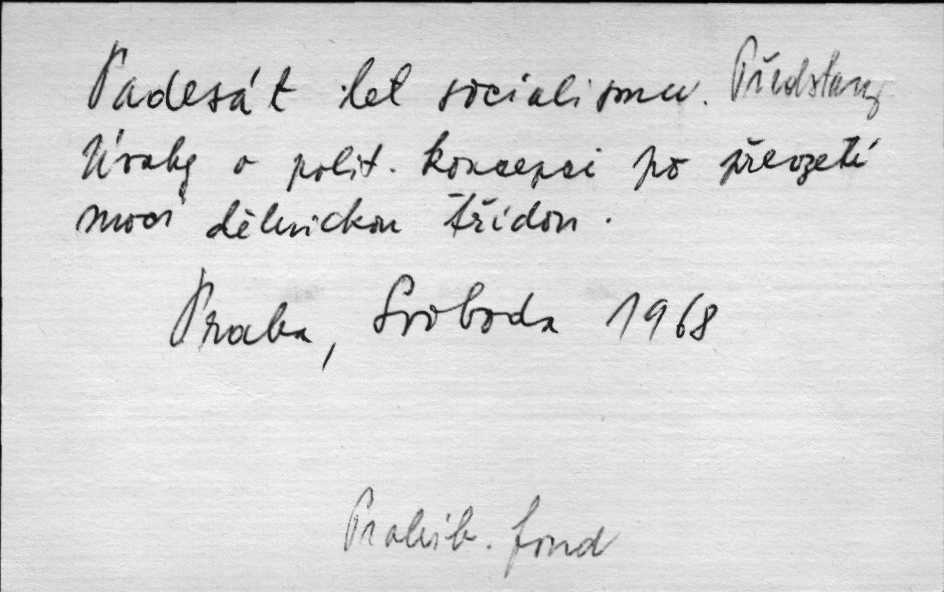 Padesát let socialismu. Představy
Úvahy o polit. koncepci po převzetí
moci dělnickou třídou.
Praha, Svoboda 1968
Prohib. fond